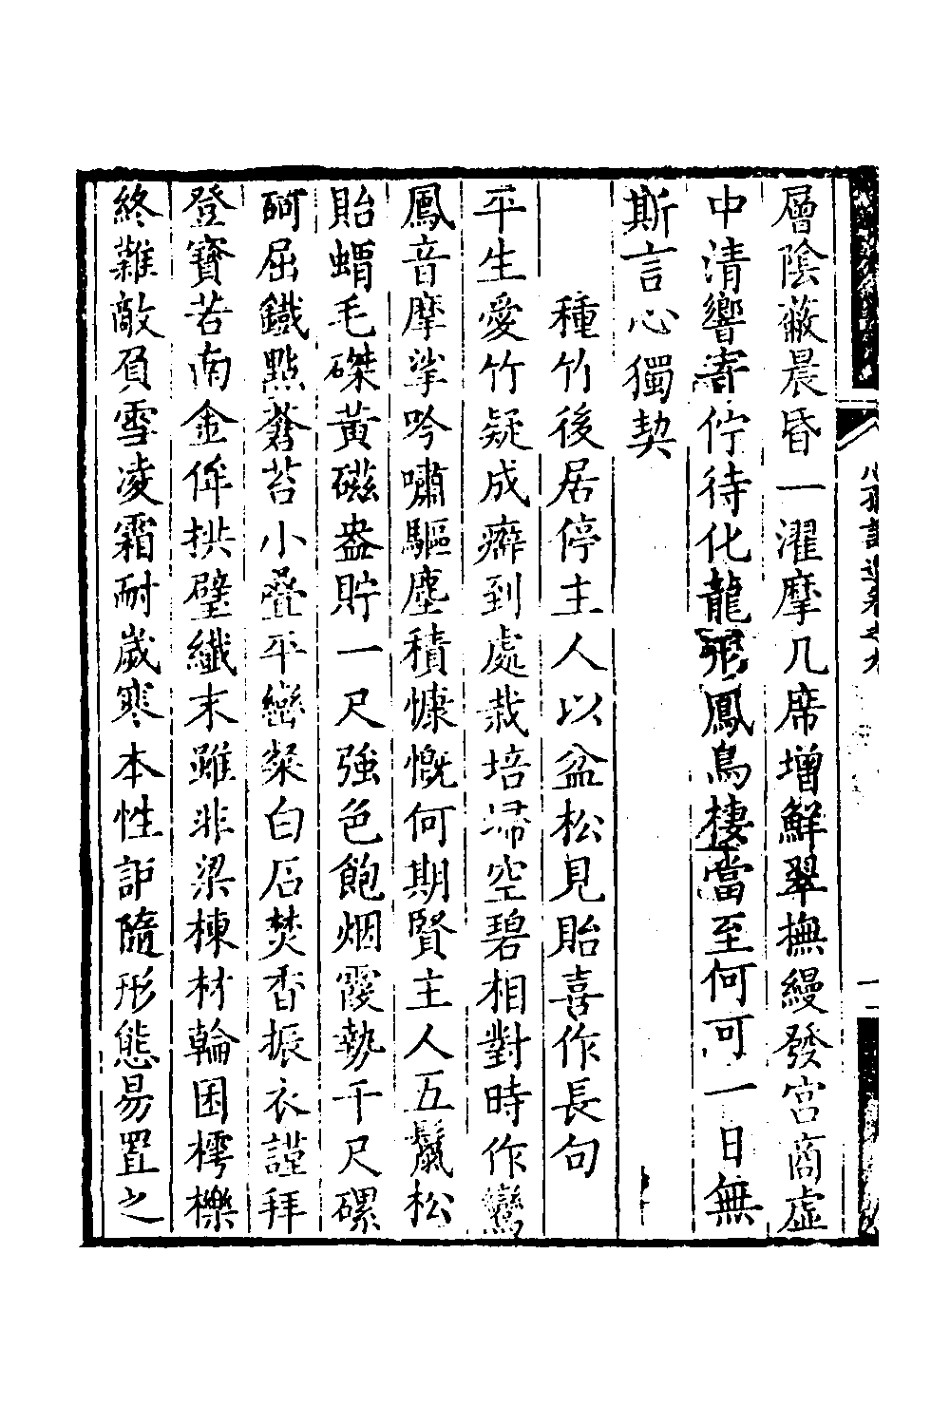 層陰蔽晨昏一濯摩几席增鮮翠撫縵發宮商虛
中清響寄佇待化龍飛鳳鳥棲當至何可一日無
斯言心獨契
種竹後居停主人以盆松見貽喜作長句
平生愛竹疑成癖到處栽培埽空碧相對時作鸞
鳳音摩挲吟嘯驅塵積慷慨何期賢主人五鬣松
貽蝟毛磔黃磁盎貯一尺強色飽烟霞勢千尺磥
砢屈鐵點蒼苔小疊平巒粲白石焚香振衣謹拜
登寶若南金侔拱璧纖末雖非梁棟材輪囷樗櫟
終難敵負雪凌霜耐歲寒本性詎隨形態易置之